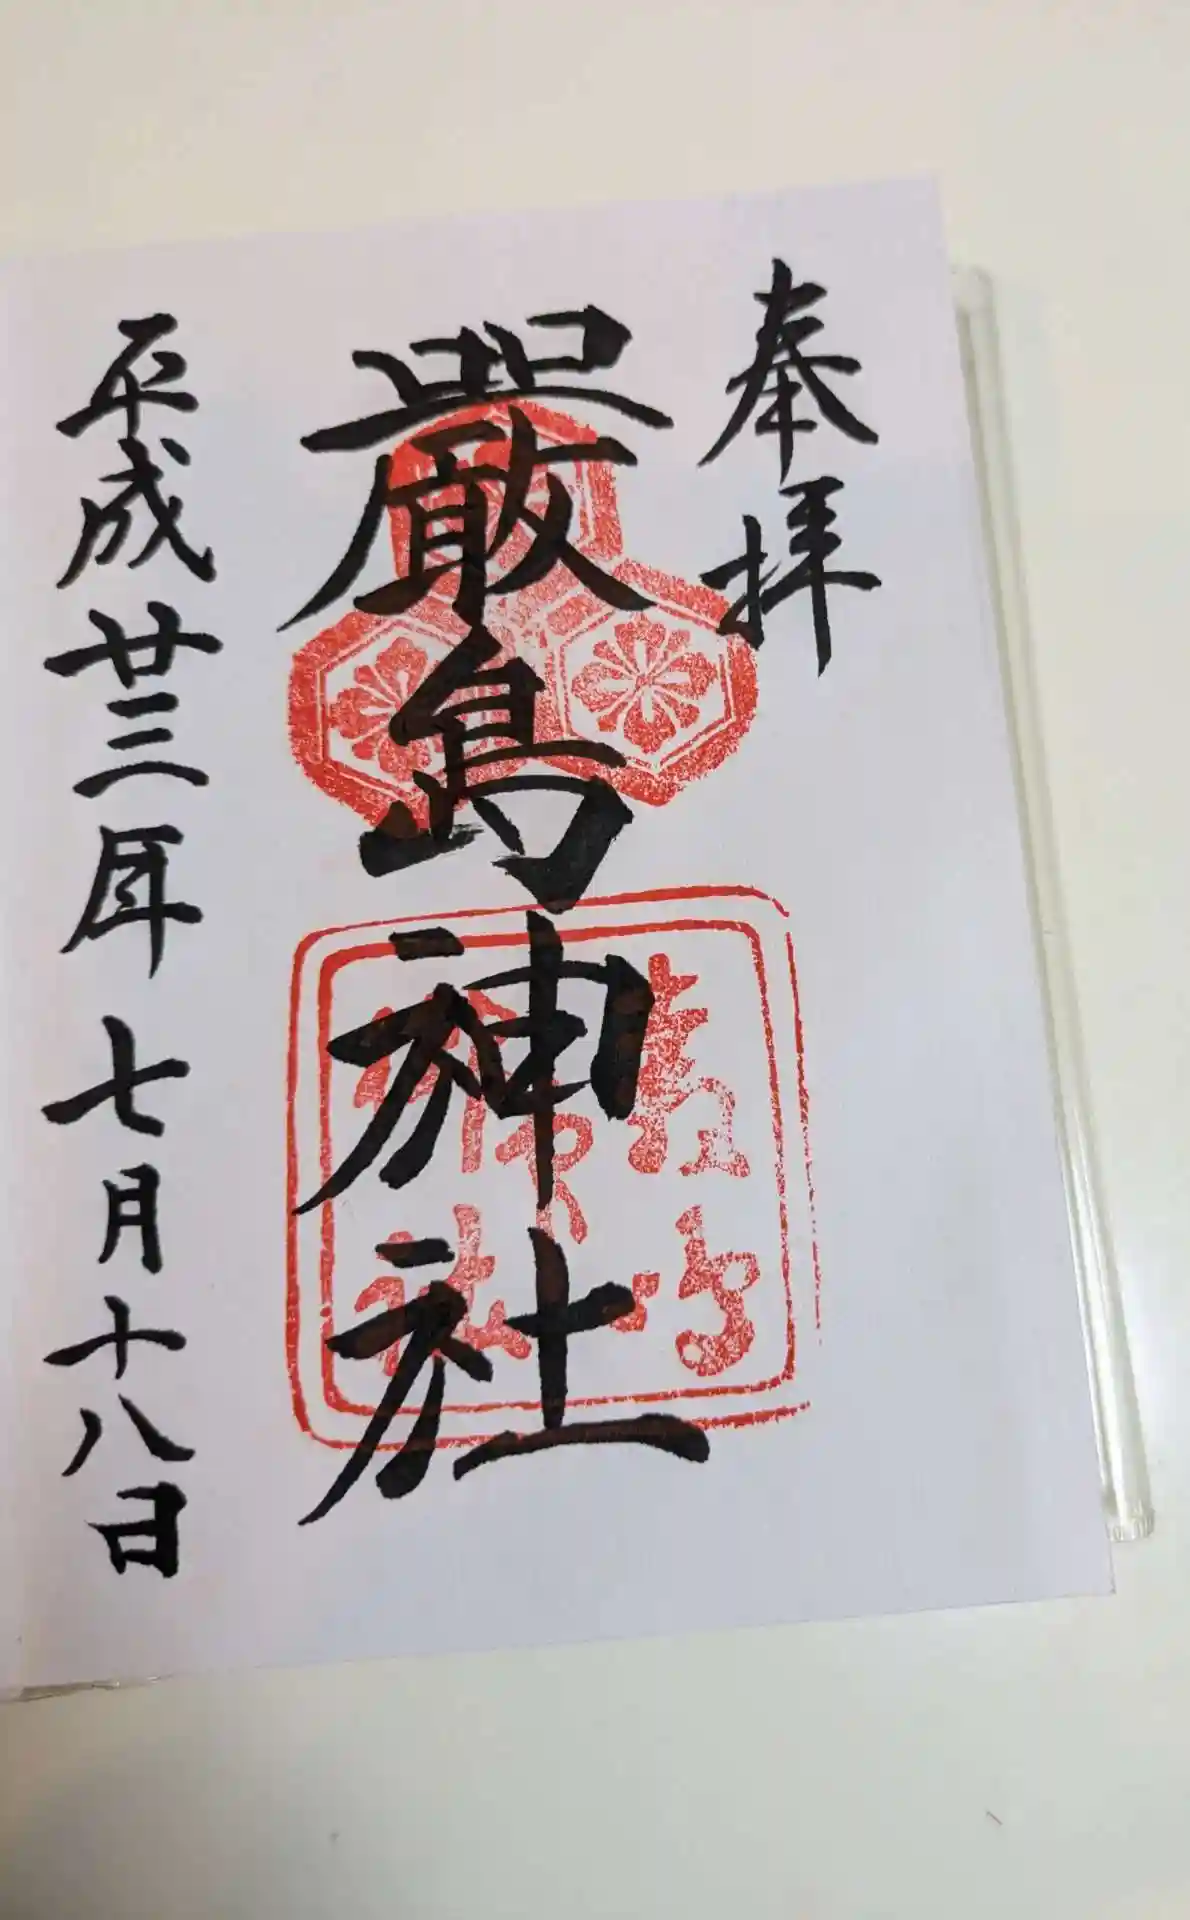 奉拝
嚴島神社
嚴島神社
平成廿三年七月十八日